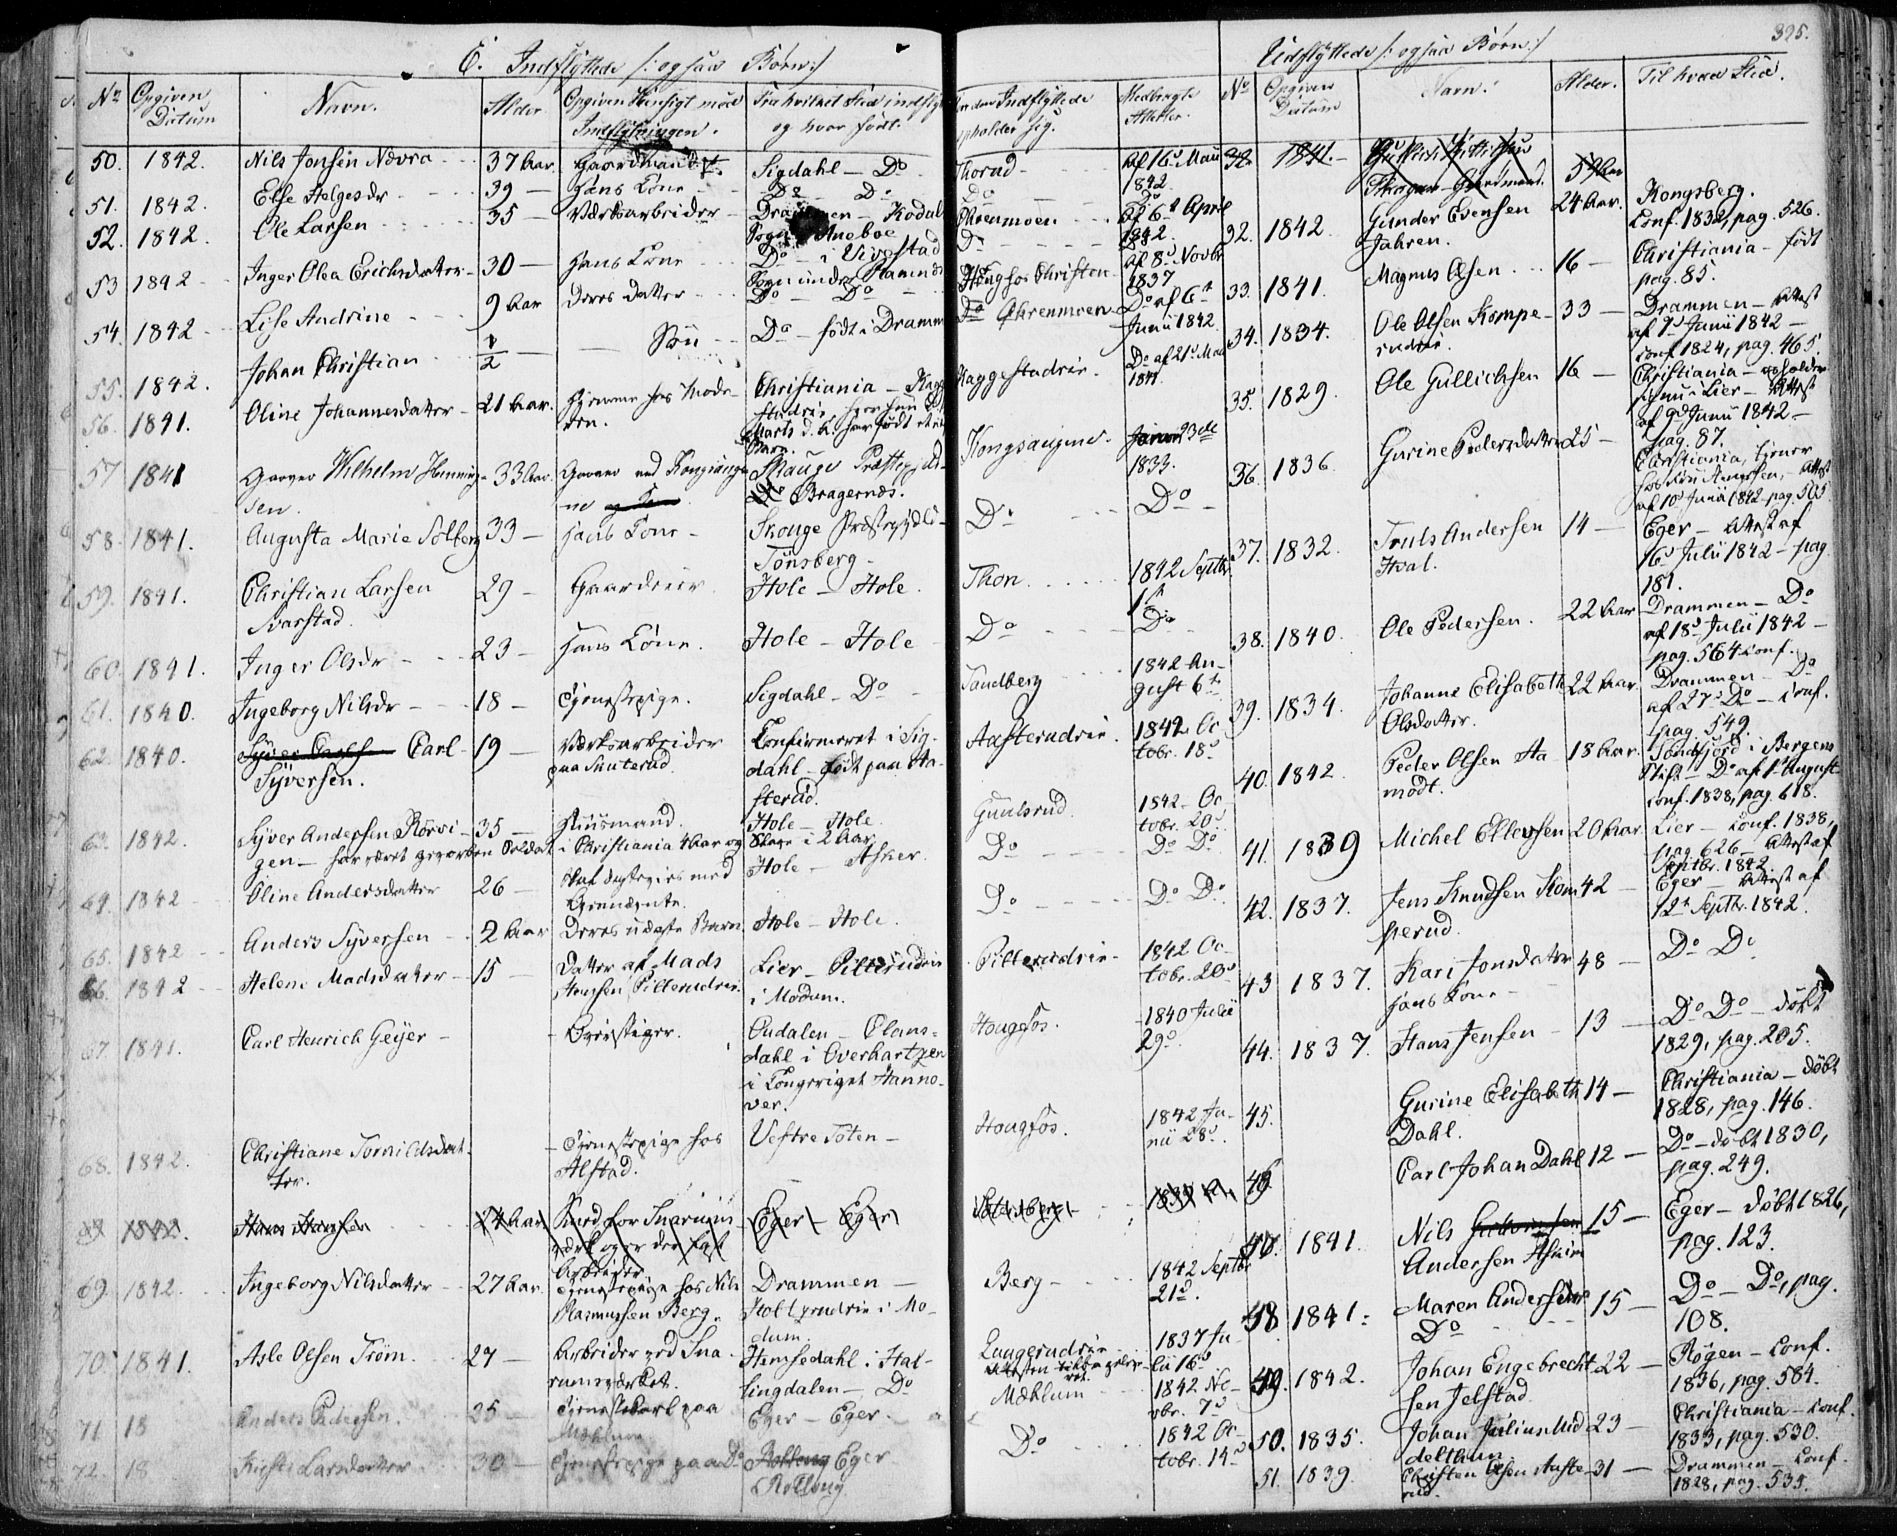 395.
E. Indflyttede /: ogsaa Børn :/
Udflyttede /: ogsaa Børn :/
No
Opgiven Datum
Navn.
Alder
Opgiven Hensigt med Indflytningen.
Fra hvilket Sted indflyt og hvor født.
Indflyttede opholder sig.
Medbragte Attester.
No
Opgiven Datum
Navn.
Alder.
Til hvad Sted.
50. 1842. Nils Jonsen Nævra 37 Aar Gaardmand Sigdahl — Do Thorud af 16d Maii 1842
51. 1842. Else Helgesdr 39 — Hans Kone Do Do Do Do
52. 1842. Ole Larsen 35 — Værksarbeider Drammen Øhrenmoen af 6t April 1842
53 1842 Inger Olea Erichsdatter 30 — Hans Kone Do — i Do af 8d Novbr 1837
54. 1842 Lise Andrine 9 Aar Deres Datter Do — Do
55. 1842. Johan Christian 1/2 — Søn Do — født i Dramm Do Øhrenmoen Do af 6t Junii 1842
56. 1841. Oline Johannesdatter 21 Aar. Hjemme hos Moderen. Christiania Haggestadeie. Do af 21d Maii 1841
57 1841 Garver Wilhelm Hemmingsen. 33 Aar Garver ved Kongsaugene Skauge Præstegjeld Do Bragernæs. Kongsaugene 23de 1833.
58. 1841. Augusta Marie Solberg 33 — Hans Kone — Skouge Præstegjeld — Tønsberg Do Do
59. 1841. Christian Larsen Svarstad 29 — Gaardeier Hole — Hole. Thon 1842 Septbr 1t
60. 1841. Inger Olsdr 23 — Hans Kone. Hole — Hole Do Do
61. 1840. Ingeborg Nilsdr 18 — Tjenestepige. Sigdahl — Do Sandberg 1842 August 6te
62. 1840. Carl Syversen. 19 — Værksarbeider paa Snarerud Confirmeret i Sigdahl — født paa Aasterud. Aasterudeie. 1842 October 18d
63. 1842. Syver Andersen Rørvigen — har været gevorben Soldat 35 — Huusmand. i Christiania 4 Aar og Hole — Hole Skage i 2 Aar Gunlsrud. 1842 — Octobr. 20d
64. 1842 Oline Andersdatter 26 — Skaf dastegies med Grændsente. Hole — Asker. Do Do Do
65. 1842 Anders Syversen 2 Aar Deres uægte Barn Hole — Hole. Do Do Do
66. 1842 Helene Madsdatter 15 Datter af Mads Hansen Pilterudeie. Lier — Pilterudeie i Modum. Pilterudeie 1842 October 20d
67. 1841. Carl Henrich Geijer — Overstiger. Andalen — Clausdahl i Overhartzen i Kongeriget Hannover. Hougfos. 1840 Julii 29d.
68. 1842. Christiane Tornildsdatter. — Tjenestepige hos Alstad. Vestre Toten — Hougfos. 1842 Junii 28d.
69 1842. Hans Hansen 24 Aar Smed for Snarums værk og er der fast Arbeider. Eger — Eger
69. 1842. Ingeborg Nilsdatter 27 Aar. Tjenestepige hos Nils Rasmussen Berg. Drammen — Holtgrudeie i Modum. Berg 1842 Septbr 21d.
70. 1841. Asle Olsen Trøm. 27 — Arbeider ved Snarumsværket. Hemsedahl i Hallingdalen — Do Laagerudeie 1837 Julii 16d
71 18 Anders Pedersen. 25 — Tjenestekarl paa Mæhlum Eger — Eger. Mæhlum 1842 Novbr. 7d
72. 18 Kirsti Larsdatter 30 — Tjenestepige paa Do Eger Rolloug. Do 1842 October 14d
32. 1841. Gaardmand. 59 Aar
32. 1842 Gunder Evensen Jahren. 24 Aar. Kongsberg. Conf. 1832, pag. 526.
33. 1841. Magnus Olsen 16 — Christiania — født pag. 85
34. 1834. Ole Olsen Komperudeie. 33 — Drammen — Attest af 7d Junii 1842 — Conf 1824, pag. 465
35. 1829. Ole Gullichsen 16 — Christiania — opholder sig nu i Lier — Attest af 9d Junii 1842 — pag. 87.
36. 1836. Gurine Pedersdatter 25 — Christiania, tjener hos — Attest af 10d Junii 1842 pag. 505
37. 1832. Truls Andersen Hval. 14 — Eger — Attest af 16d Julii 1842 — pag 181.
38. 1840. Ole Pedersen. 22 Aar Drammen — Do af 18d Julii 1842 — pag. 564 Conf.
39. 1834. Johanne Elisabeth Olsdatter. 22 Aar. Drammen — Do af 27d Do — Conf. pag. 549.
40. 1842. Peder Olsen Aamodt. 18 Aar. Søndfjord i Bergens Stift — Do af 1t August conf. 1838, pag. 618.
41. 1839 Michel Ellevsen 20 Aar Lier — Conf. 1838, pag 626 — Attest af Septbr. 1842
42. 1837. Jens Knudsen Komperud. 42 — Eger Attest af 12t Septbr. 1842.
43 1837. Kari Jonsdatter Hans Kone — 48 — Do Do
44. 1837. Hans Jensen — 13 — Do Do — Døbt 1829, pag. 205.
45. Gurine Elisabeth Dahl. 14 — Christiania — Døbt 1828, pag. 146.
46 Carl Johan Dahl 12 — Do — Døbt 1830, pag. 249.
47. 1841. Nils Andersen Askim 15 — Eger — Døbt 1826, pag. 123.
48 1841. Maren Andersdr Do 15 — Do — Do, pag. 108.
49. 1842. Johan Engebrechtsen Jelstad 22 — Røgen — Conf. 1836, pag. 584.
50. 1835. Johan Julius Middelthun 23 — Christiania — Conf. 1833, pag. 530.
51. 1839. Christen Olsen Aasterud. 31 — Drammen — Conf. 1828, pag. 534.